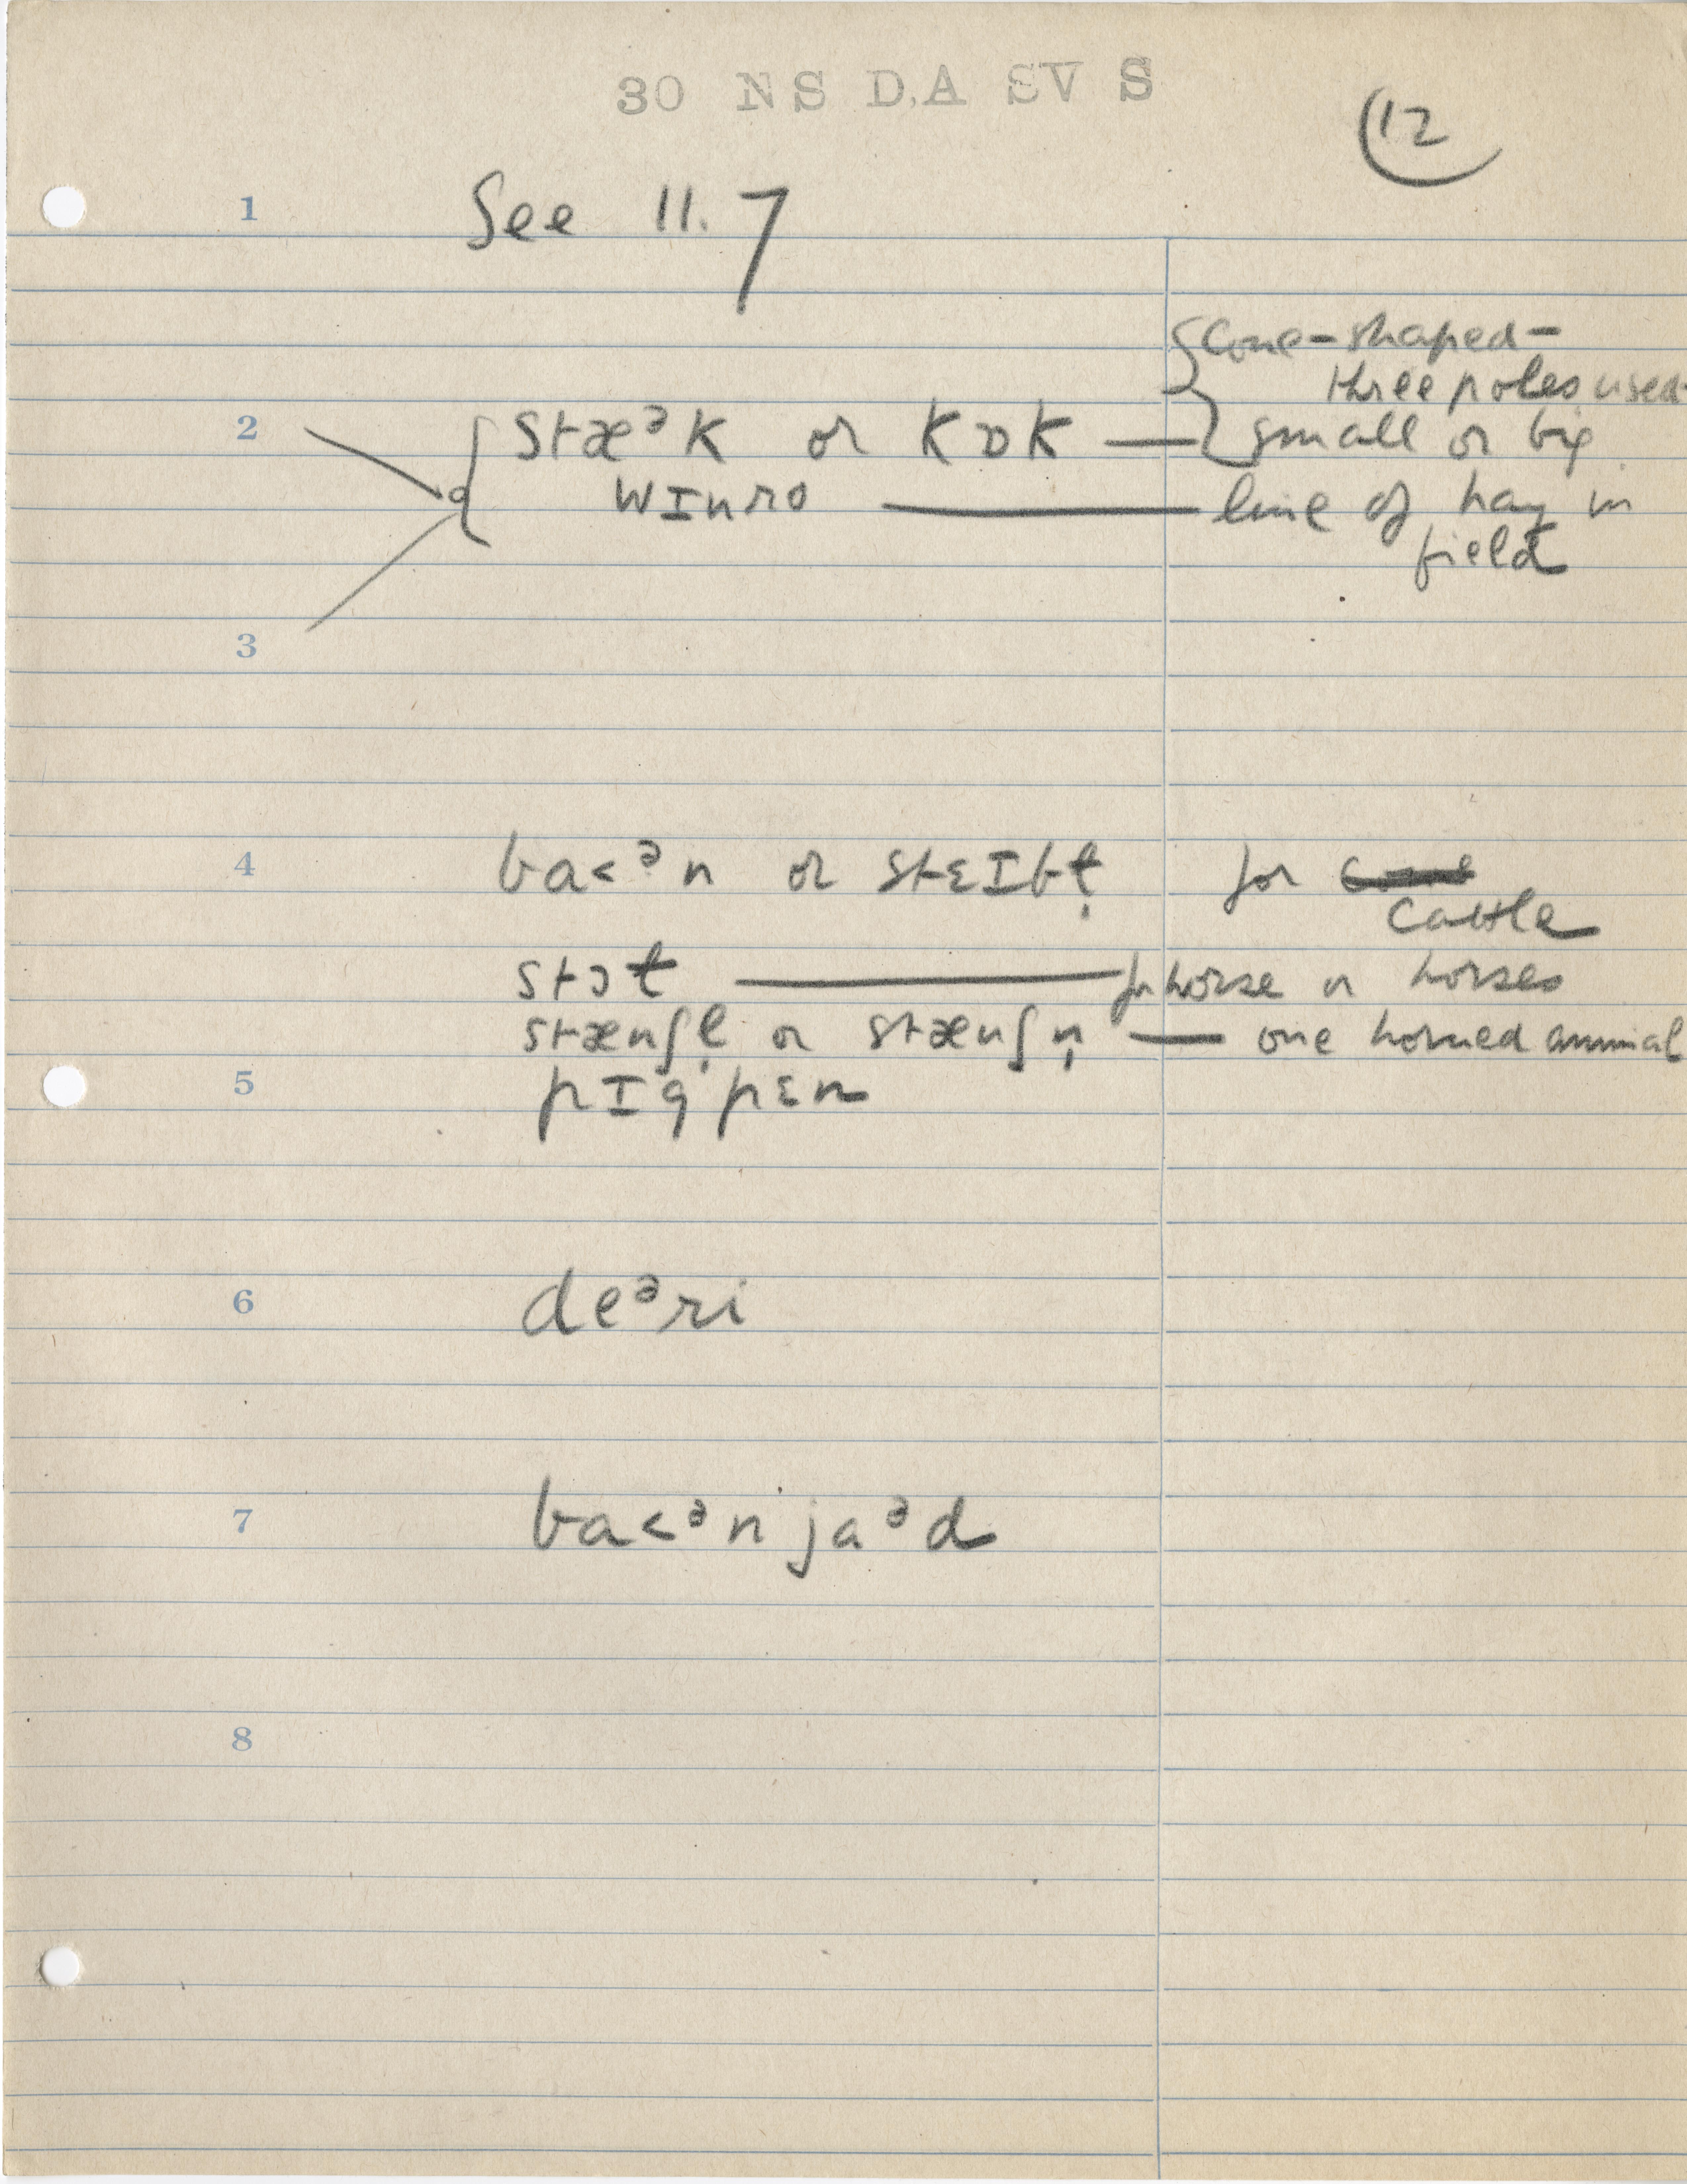 30 NS D.A SV S
12
1 See 11.7
cone-shaped-
three poles used
2 stæᵊk or kɒk — small or big
wɪnro — line of hay in
field
3
4 ba<ᵊn or stɛɪbɫ̩ for
cattle
stɔɫ — for horse or horses
stænʃl̩ or stænʃn̩ — one horned animal
5 pɪg pɛn
6 deᵊri
7 ba<ᵊn jaᵊd
8